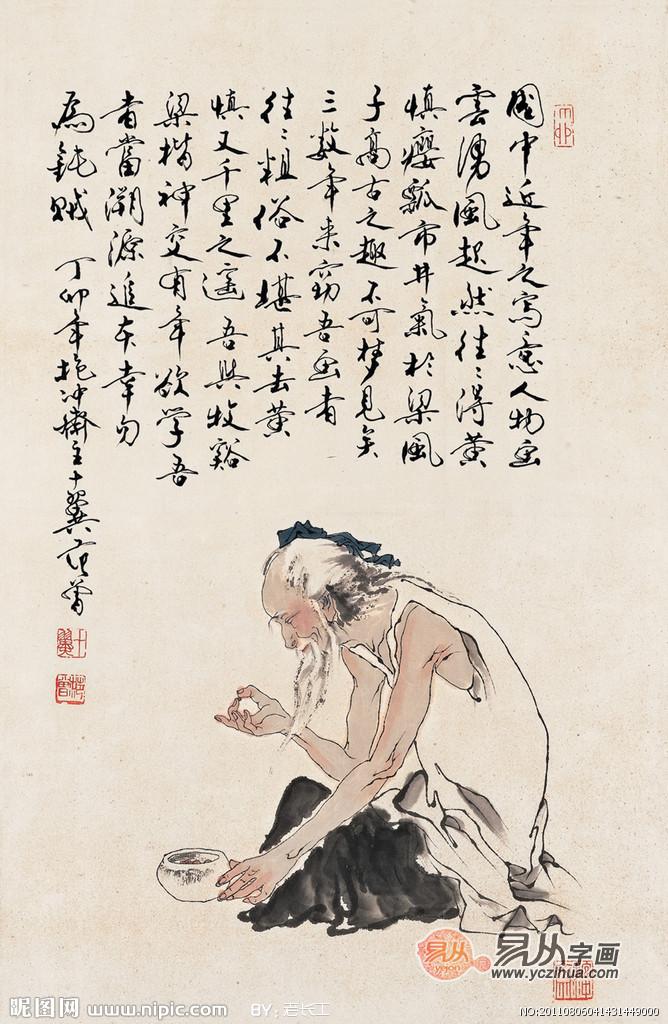 國中近年之寫意人物畫
雲湧風起然往〻得黃
慎癭瓢市井氣於梁風
子高古之趣不可夢見矣
三數年來竊吾畫者
往〻粗俗不堪其去黃
慎又千里之遙吾與牧谿
梁楷神交有年欲學吾
者當溯源追本幸勿
為鈍賊 丁卯年抱冲齋主十翼范曾
丁卯
十翼
范曾
易从
yejon
易从字画
www.yczihua.com
昵图网 www.nipic.com BY: 老长工
NO:20110806041431449000